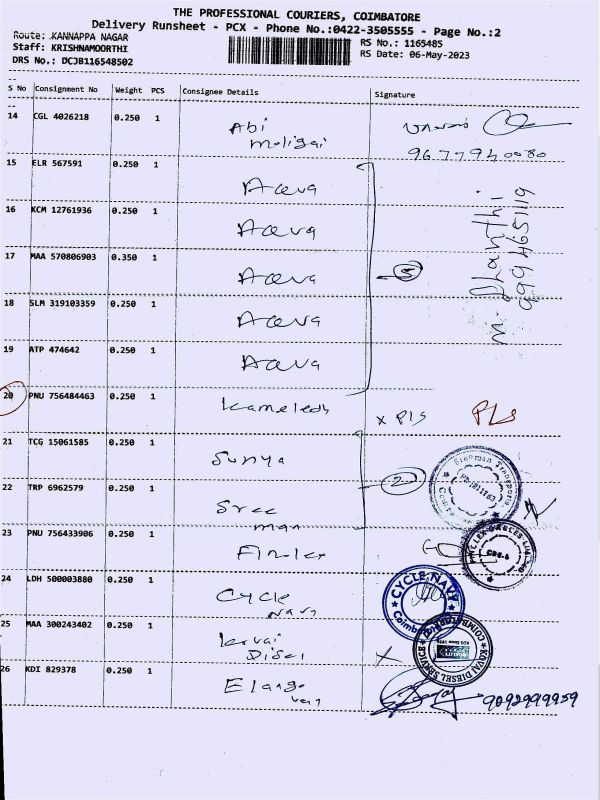 THE PROFESSIONAL COURIERS, COIMBATORE
Delivery Runsheet - PCX - Phone No.:0422-3505555 - Page No.:2
Route: .KANNAPPA NAGAR
Staff: KRISHNAMOORTHI
DRS No.: DCJB116548502
RS No.: 1165485
RS Date: 06-May-2023
S No Consignment No Weight PCS Consignee Details Signature
14 CGL 4026218 0.250 1 Abi
moligai
9677940080
15 ELR 567591 0.250 1
16 KCM 12761936 0.250 1
17 MAA 570806903 0.350 1
5
M. Dhanthi
18 SLM 319103359 0.250 1
19 ATP 474642 0.250 1
20 PNU 756484463 0.250 1 x Pls PLS
21 TCG 15061585 0.250 1 Surya
2
22 TRP 6962579 0.250 1 Sree
man
Sreeman Transports
23 PNU 756433906 0.250 1 Finlex
24 LDH 500003880 0.250 1 Cycle
Navy
CYCLE NAVY
Coimbatore
25 MAA 300243402 0.250 1 Kovai
Disel
KOVAI DIESEL SERVICE
COIMBATORE
26 KDI 829378 0.250 1 Elango
van
9092999959